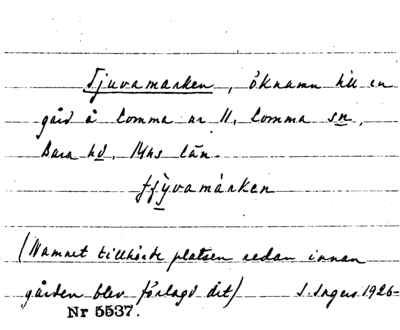 Tjuvamarken, öknamn till en
gård å Lomma nr 11, Lomma sn,
Bara hd, Mhs län.
(Namnet tillhörde platsen redan innan
gården blev förlagd dit) S. Ingers 1926-
Nr 5537.